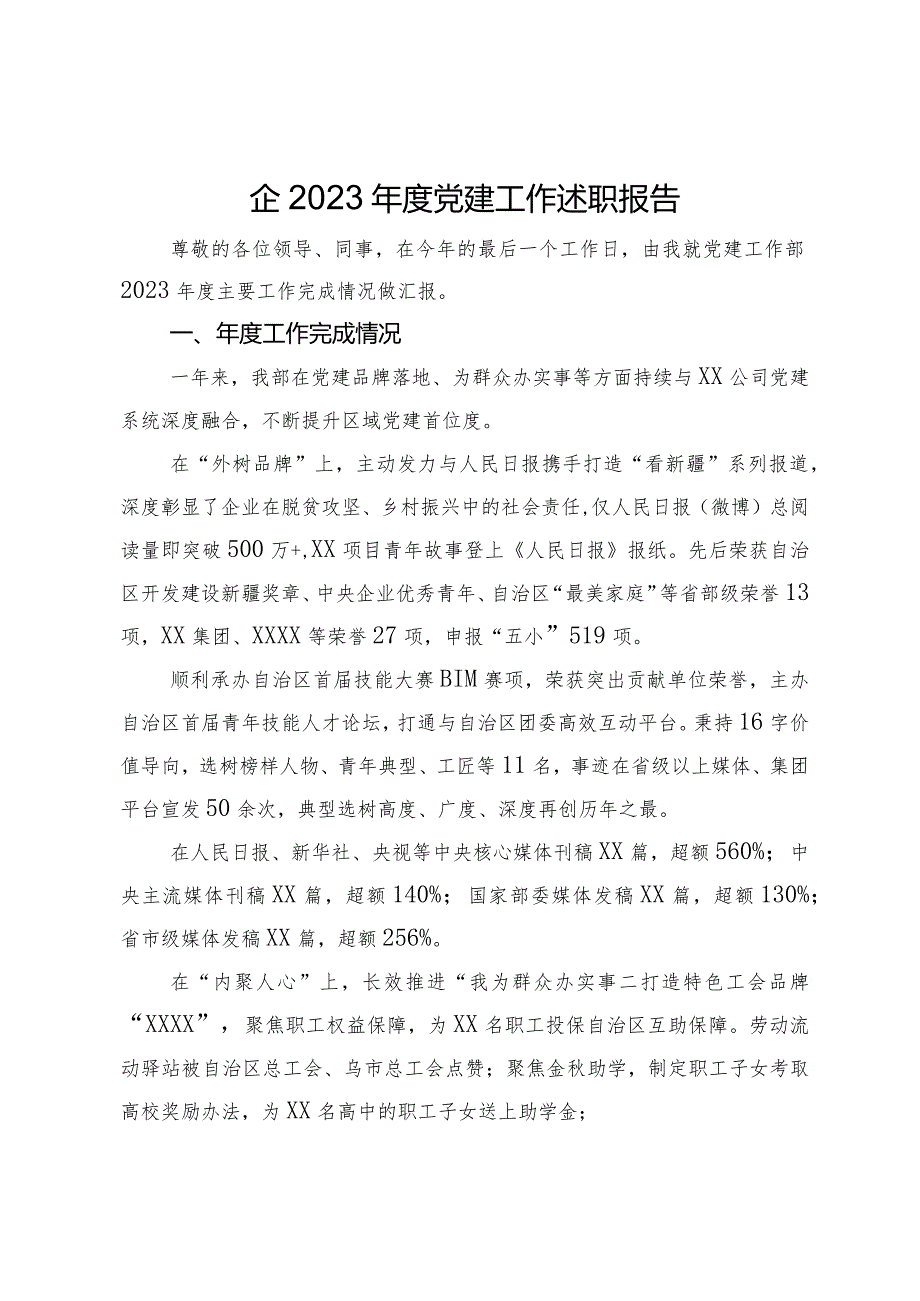 企 2023 年度党建工作述职报告
尊敬的各位领导、同事，在今年的最后一个工作日，由我就党建工作部
2023 年度主要工作完成情况做汇报。
一、年度工作完成情况
一年来，我部在党建品牌落地、为群众办实事等方面持续与 XX 公司党建
系统深度融合，不断提升区域党建首位度。
在“外树品牌”上，主动发力与人民日报携手打造“看新疆”系列报道，
深度彰显了企业在脱贫攻坚、乡村振兴中的社会责任,仅人民日报（微博）总阅
读量即突破 500 万+,XX 项目青年故事登上《人民日报》报纸。先后荣获自治
区开发建设新疆奖章、中央企业优秀青年、自治区“最美家庭”等省部级荣誉 13
项，XX 集团、XXXX 等荣誉 27 项，申报“五小”519 项。
顺利承办自治区首届技能大赛 BIM 赛项，荣获突出贡献单位荣誉，主办
自治区首届青年技能人才论坛，打通与自治区团委高效互动平台。秉持 16 字价
值导向，选树榜样人物、青年典型、工匠等 11 名，事迹在省级以上媒体、集团
平台宣发 50 余次，典型选树高度、广度、深度再创历年之最。
在人民日报、新华社、央视等中央核心媒体刊稿 XX 篇，超额 560%；中
央主流媒体刊稿 XX 篇，超额 140%；国家部委媒体发稿 XX 篇，超额 130%；
省市级媒体发稿 XX 篇，超额 256%。
在“内聚人心”上，长效推进“我为群众办实事二打造特色工会品牌
“XXXX”，聚焦职工权益保障，为 XX 名职工投保自治区互助保障。劳动流
动驿站被自治区总工会、乌市总工会点赞；聚焦金秋助学，制定职工子女考取
高校奖励办法，为 XX 名高中的职工子女送上助学金；